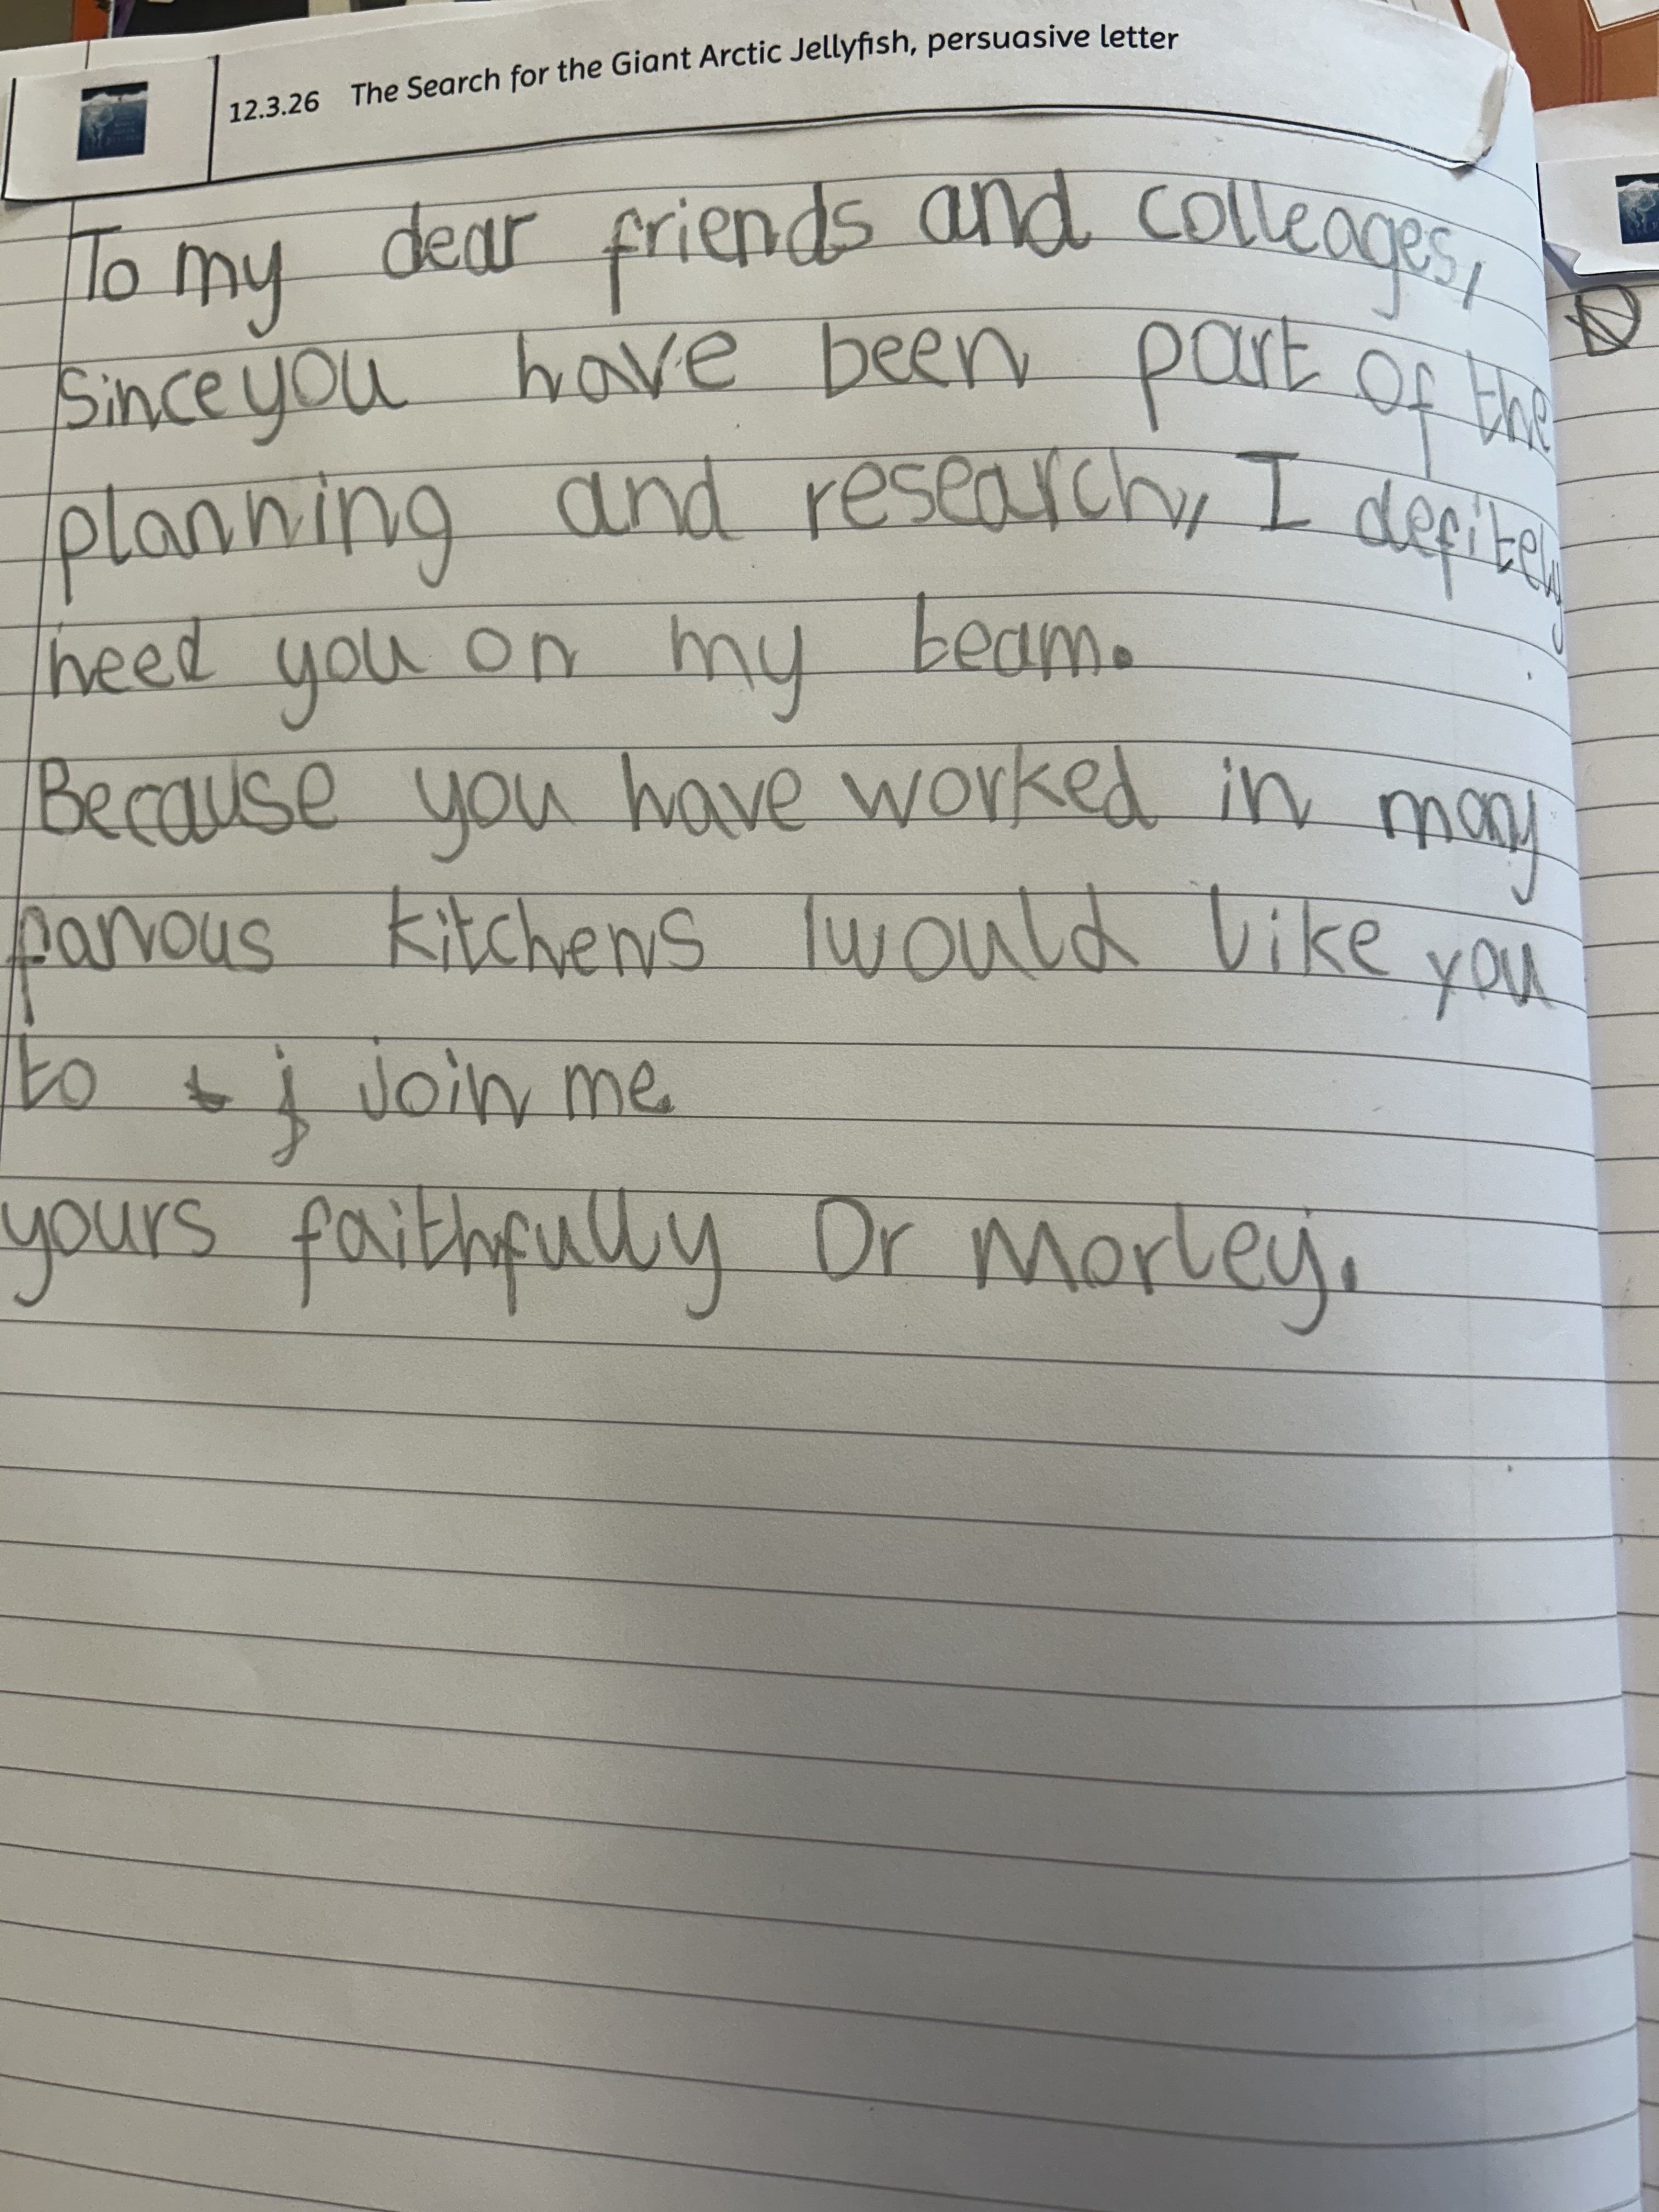 12.3.26 The Search for the Giant Arctic Jellyfish, persuasive letter
To my dear friends and colleages,
Since you have been part of the
planning and research, I defitely
need you on my team.
Because you have worked in many
famous kitchens I would like you
to t j join me
yours faithfully Dr Morley.